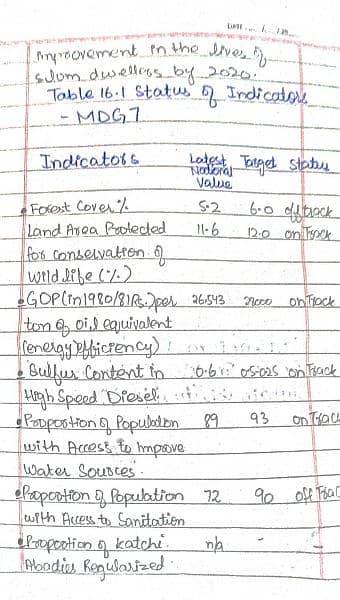 Improvement in the lives of
slum dwellers by 2020.
Table 16.1 Status of Indicators
- MDG7
Indicators Latest National Value Target Status
• Forest Cover % 5.2 6.0 off track
Land Area Protected 11.6 12.0 on Track
for conservation of
wildlife (%)
• GDP (in 1980/81 Rs.) per 26,543 on Track
ton of oil equivalent
(energy efficiency)
• Sulfur Content in on Track
High Speed "Diesel"
• Proportion of Population 89 93 on Trac
with Access to Improve
Water Sources.
• Proportion of Population 72 90 off Trac
with Access to Sanitation
• Proportion of Katchi n/a - -
Abadies Regularized.